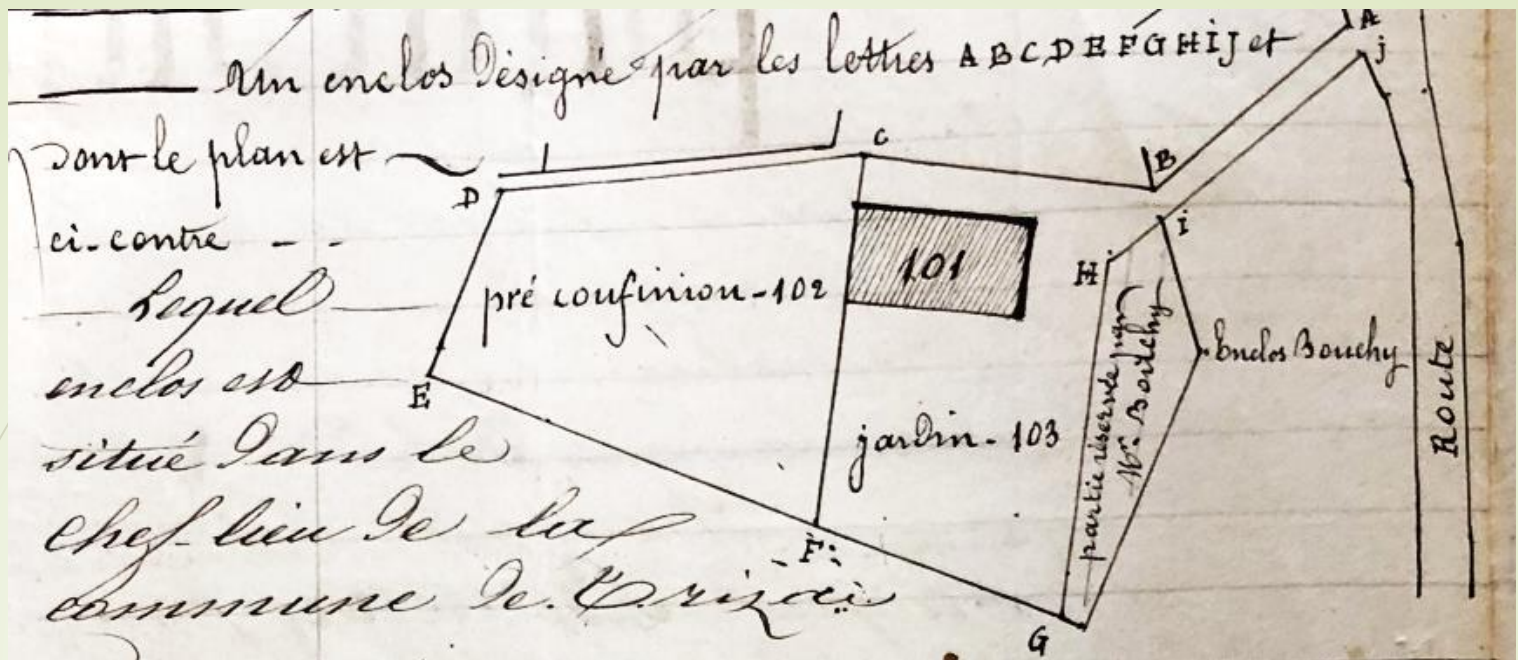 Un enclos désigné par les lettres A B C D E F G H I J et
dont le plan est
ci-contre - -
Lequel
enclos est
situé dans le
chef-lieu de la
commune de Trizai
A
j
C
B
D
i
H
101
pré coufinion-102
E
partie réservée par
Mr. Bouchy
Enclos Bouchy
Route
jardin-103
F
G